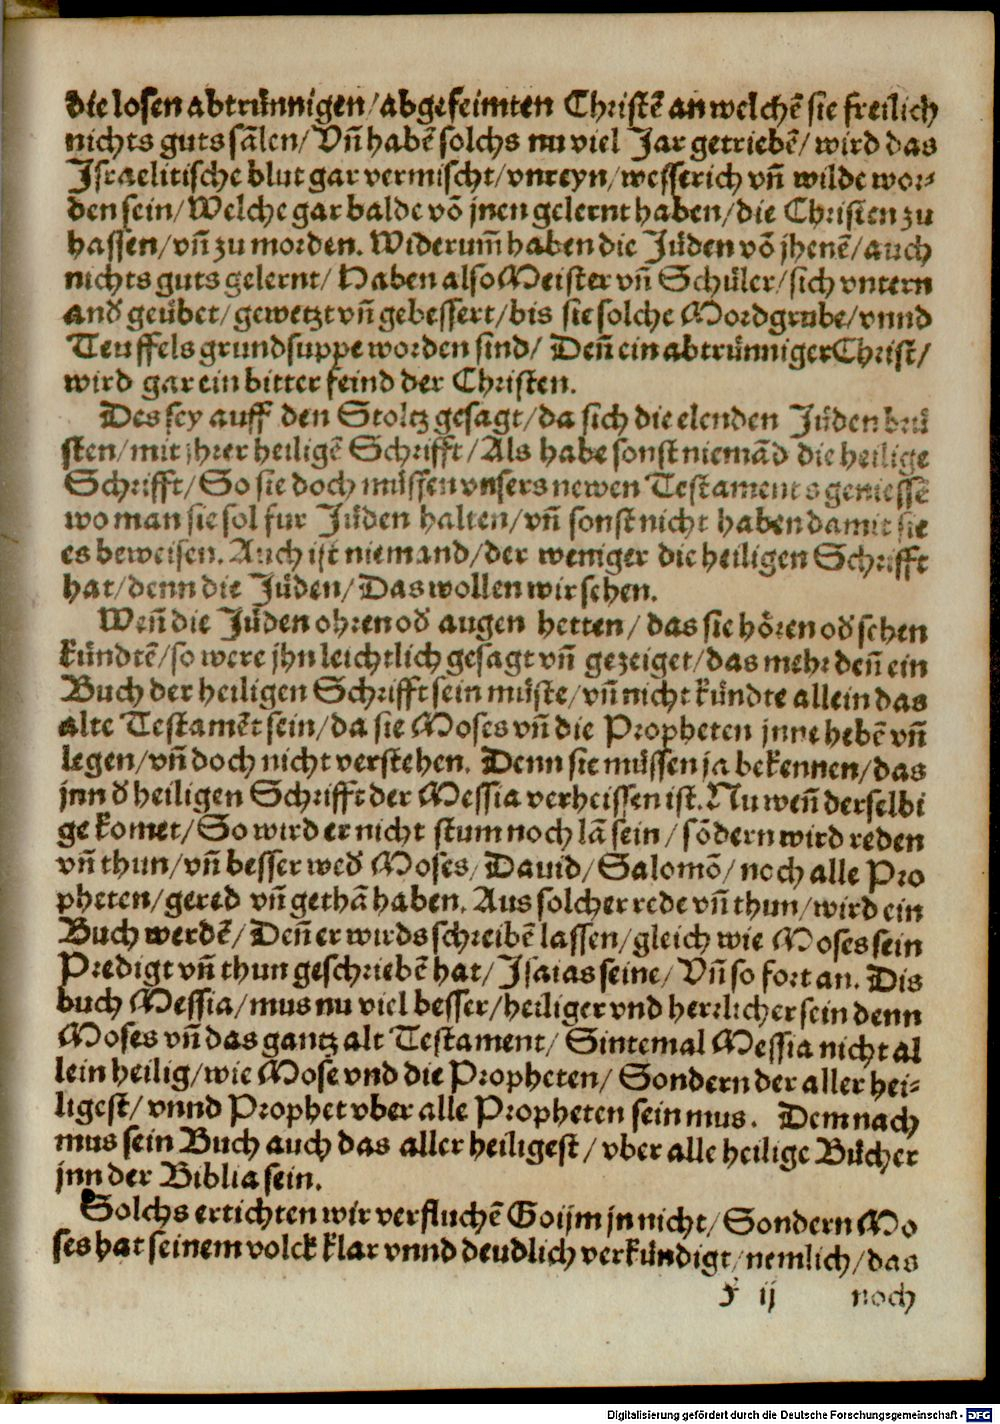 die losen abtruͤnnigen/abgefeimten Christē an welchē sie freilich
nichts guts sālen/Vñ habē solchs nu viel Jar getriebē/wird das
Israelitische blut gar vermischt/vnreyn/wesserich vñ wilde wor⸗
den sein/Welche gar balde võ jnen gelernt haben/die Christen zu
hassen/vñ zu morden. Widerum̃ haben die Juͤden võ jhenē/auch
nichts guts gelernt/Haben also Meister vñ Schuͤler/sich vntern
and geuͤbet/gewetzt vñ gebessert/bis sie solche Mordgrube/vnnd
Teuffels grundsuppe worden sind/ Deñ ein abtruͤnniger Christ/
wird gar ein bitter feind der Christen.
Des sey auff den Stoltz gesagt/da sich die elenden Juͤden bruͤ
sten/mit jhrer heiligē Schrifft/Als habe sonst niemād die heilige
Schrifft/So sie doch muͤssen vnsers newen Testaments geniessē
wo man sie sol fur Juͤden halten/vñ sonst nicht haben damit sie
es beweisen. Auch ist niemand/der weniger die heiligen Schrifft
hat/denn die Juͤden/Das wollen wir sehen.
Weñ die Juͤden ohren od augen hetten/das sie hoͤren od sehen
kuͤndtē/so were jhn leichtlich gesagt vñ gezeiget/das mehr deñ ein
Buch der heiligen Schrifft sein muͤste/vñ nicht kuͤndte allein das
alte Testamēt sein/da sie Moses vñ die Propheten jnne hebē vñ
legen/vñ doch nicht verstehen. Denn sie muͤssen ja bekennen/das
jnn d heiligen Schrifft der Messia verheissen ist. Nu weñ derselbi
ge komet/So wird er nicht stum noch lā sein/sōdern wird reden
vñ thun/vñ besser wed Moses/Dauid/Salomō/noch alle Pro
pheten/gered vñ gethā haben. Aus solcher rede vñ thun/wird ein
Buch werdē/Deñ er wirds schreibē lassen/gleich wie Moses sein
Predigt vñ thun geschriebē hat/Isaias seine/Vñ so fort an. Dis
buch Messia/mus nu viel besser/heiliger vnd herrlicher sein denn
Moses vñ das gantz alt Testament/ Sintemal Messia nicht al
lein heilig/wie Mose vnd die Propheten/ Sondern der aller hei⸗
ligest/vnnd Prophet vber alle Propheten sein mus. Demnach
mus sein Buch auch das aller heiligest/vber alle heilige Buͤcher
jnn der Biblia sein.
Solchs ertichten wir verfluchē Goijm jn nicht/Sondern Mo
ses hat seinem volck klar vnnd deudlich verkuͤndigt/nemlich/das
F ij noch
Digitalisierung gefördert durch die Deutsche Forschungsgemeinschaft - DFG